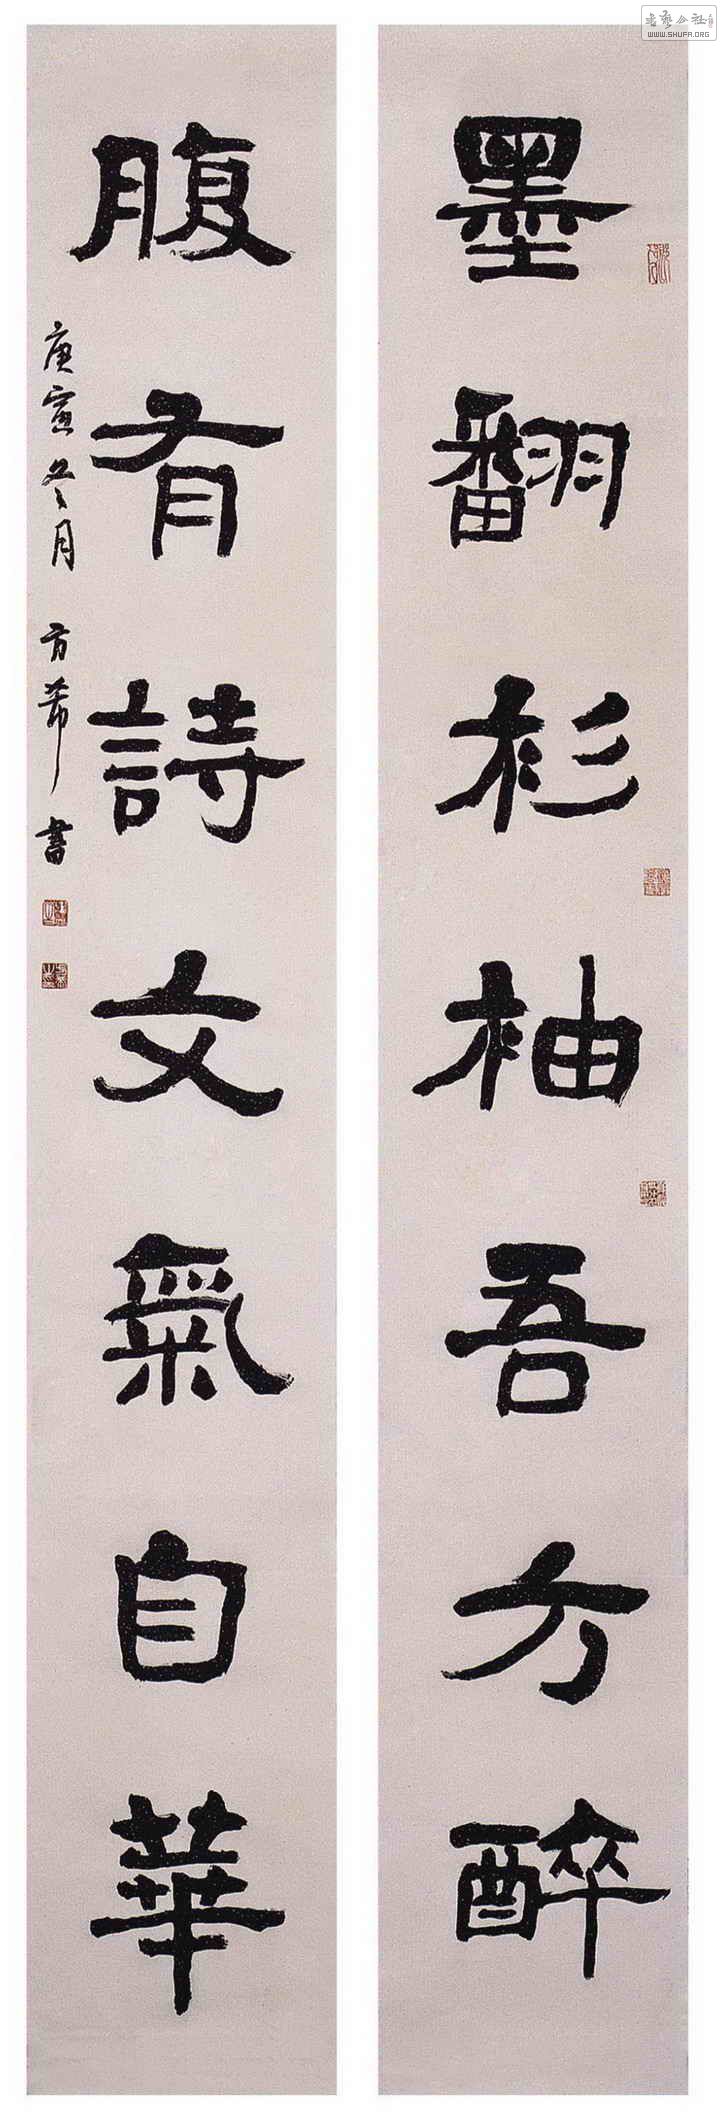 墨翻杉柚吾方醉
腹有詩文氣自華
庚寅冬月 方希書
書藝公社
WWW.SHUFA.ORG